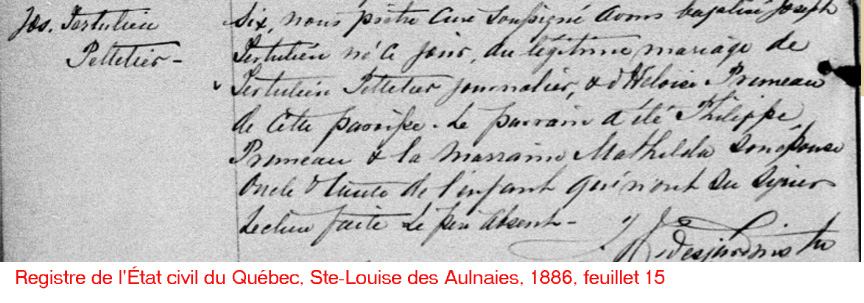 Jos. Tertulien
Pelletier -
Six, nous prêtre Curé Soussigné avons baptisé Joseph
Tertulien né Ce jour, du légitime mariage de
Tertulien Pelletier journalier, & d'Heloise Primeau
de Cette paroisse. Le parrain a été Philippe
Primeau & la Marraine Mathilda Son épouse
Oncle & tante de l'enfant qui n'ont Su Signer
Lecture faite Le père Absent -
Desjardins Ptr
Registre de l'État civil du Québec, Ste-Louise des Aulnaies, 1886, feuillet 15